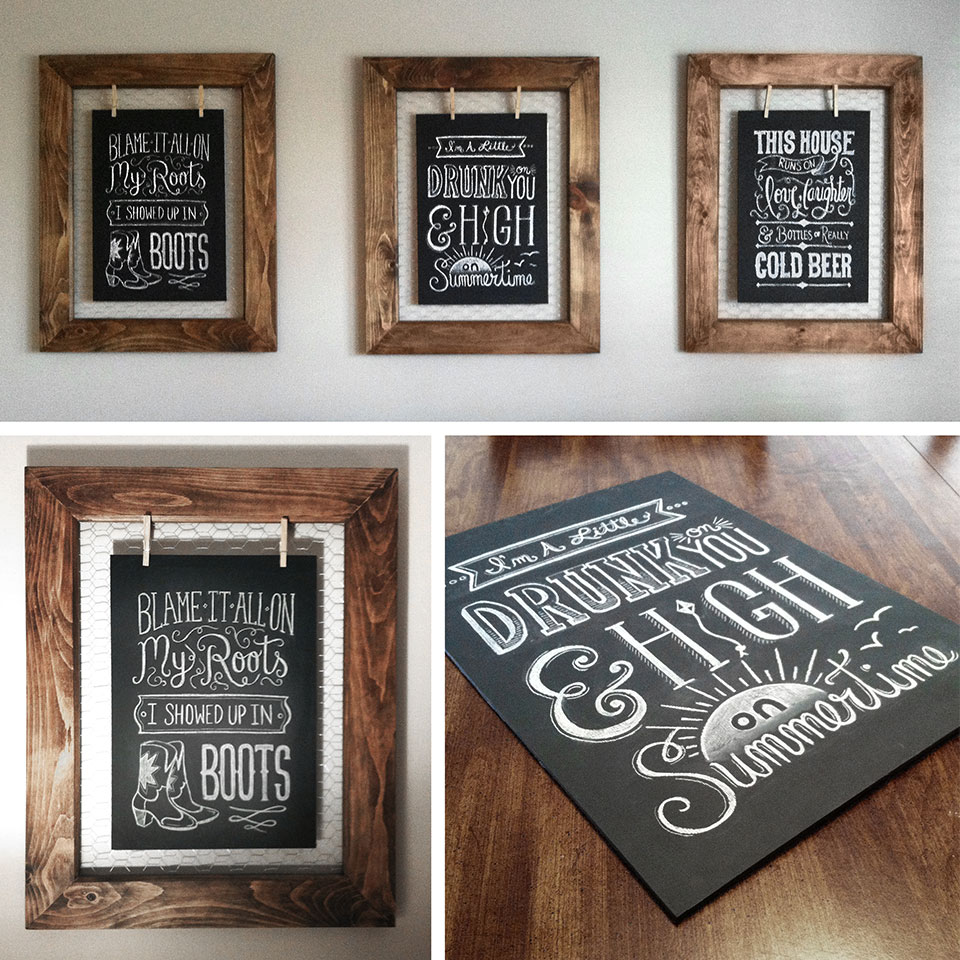 BLAME·IT·ALL·ON
My Roots
I SHOWED UP IN
BOOTS
I'm A Little
DRUNK on YOU
& HIGH
on
Summertime
THIS HOUSE
RUNS ON
love, laughter
& BOTTLES OF REALLY
COLD BEER
BLAME·IT·ALL·ON
My Roots
I SHOWED UP IN
BOOTS
...I'm A Little...
DRUNK on YOU
& HIGH
on
Summertime